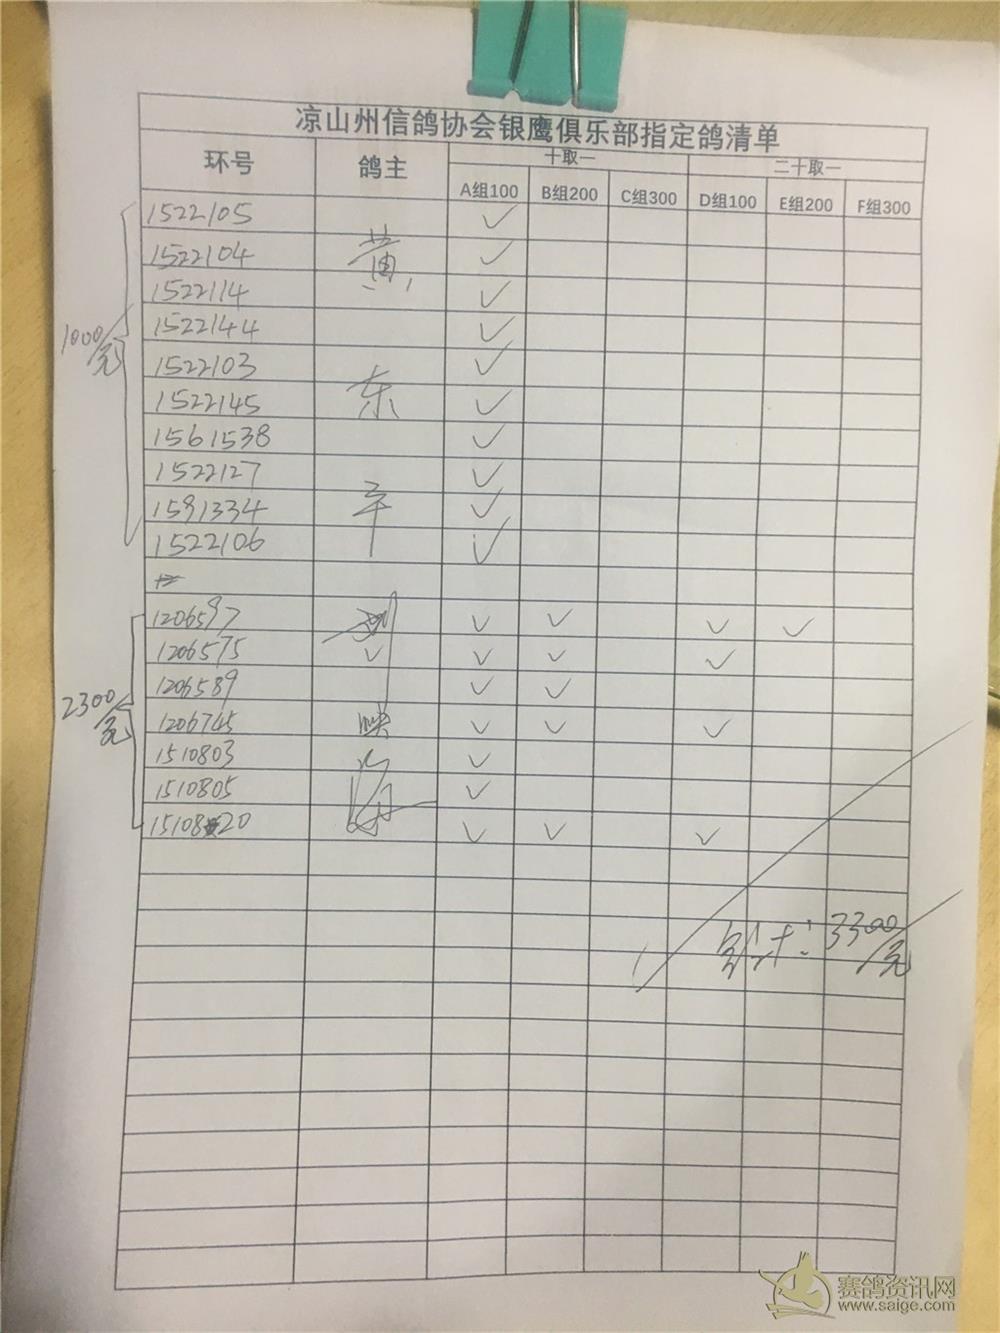 凉山州信鸽协会银鹰俱乐部指定鸽清单
环号 鸽主 十取一 二十取一
A组100 B组200 C组300 D组100 E组200 F组300
1522105 ✓
1522104 黄 ✓
1522114 ✓
1522144 ✓
1000元
1522103 ✓
1522145 东 ✓
1561538 ✓
1522127 ✓
1591334 平 ✓
1522106 ✓
1206597 刘 ✓ ✓ ✓ ✓
1206575 ✓ ✓ ✓ ✓
1206589 ✓ ✓
2300元
1206745 映 ✓ ✓ ✓
1510803 ✓
1510805 海 ✓
1510820 ✓ ✓ ✓
合计：3300元
赛鸽资讯网
www.saige.com